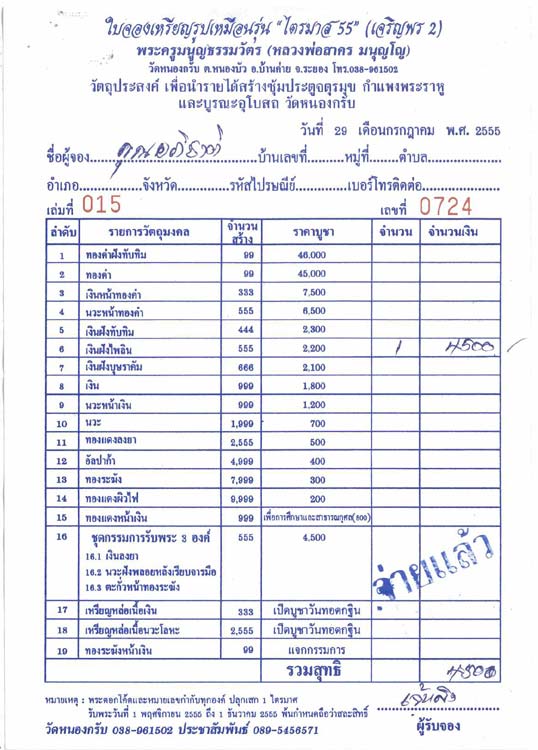 ใบจองเหรียญรูปเหมือนรุ่น "ไตรมาส 55" (เจริญพร 2)
พระครูมนูญธรรมวัตร (หลวงพ่อสาคร มนุญโญ)
วัดหนองกรับ ต.หนองบัว อ.บ้านค่าย จ.ระยอง โทร.038-961502
วัตถุประสงค์ เพื่อนำรายได้สร้างซุ้มประตูจตุรมุข กำแพงพระราหู
และบูรณะอุโบสถ วัดหนองกรับ
วันที่ 29 เดือนกรกฎาคม พ.ศ. 2555
ชื่อผู้จอง.......... บ้านเลขที่..........หมู่ที่........ตำบล....................
อำเภอ..................จังหวัด................รหัสไปรษณีย์..............เบอร์โทรติดต่อ....................
เล่มที่ 015 เลขที่ 0724
ลำดับ รายการวัตถุมงคล จำนวนสร้าง ราคาบูชา จำนวน จำนวนเงิน
1 ทองคำฝังทับทิม 99 46,000
2 ทองคำ 99 45,000
3 เงินหน้าทองคำ 333 7,500
4 นวะหน้าทองคำ 555 6,500
5 เงินฝังทับทิม 444 2,300
6 เงินฝังไพลิน 555 2,200 1 4500
7 เงินฝังบุษราคัม 666 2,100
8 เงิน 999 1,800
9 นวะหน้าเงิน 999 1,200
10 นวะ 1,999 700
11 ทองแดงลงยา 2,555 500
12 อัลปาก้า 4,999 400
13 ทองระฆัง 7,999 300
14 ทองแดงผิวไฟ 9,999 200
15 ทองแดงหน้าเงิน 999 เพื่อการศึกษาและสาธารณกุศล(800)
16 ชุดกรรมการรับพระ 3 องค์ 555 4,500
16.1 เงินลงยา
16.2 นวะฝังพลอยหลังเรียบจารมือ
16.3 ตะกั่วหน้าทองระฆัง
จ่ายแล้ว
17 เหรียญหล่อเนื้อเงิน 333 เปิดบูชาวันทอดกฐิน
18 เหรียญหล่อเนื้อนวะโลหะ 2,555 เปิดบูชาวันทอดกฐิน
19 ทองระฆังหน้าเงิน 99 แจกกรรมการ
รวมสุทธิ 4500
หมายเหตุ : พระตอกโค๊ดและหมายเลขกำกับทุกองค์ ปลุกเสก 1 ไตรมาศ
รับพระวันที่ 1 พฤศจิกายน 2555 ถึง 1 ธันวาคม 2555 พ้นกำหนดถือว่าสละสิทธิ์
วัดหนองกรับ 038-961502 ประชาสัมพันธ์ 089-5456571
ผู้รับจอง